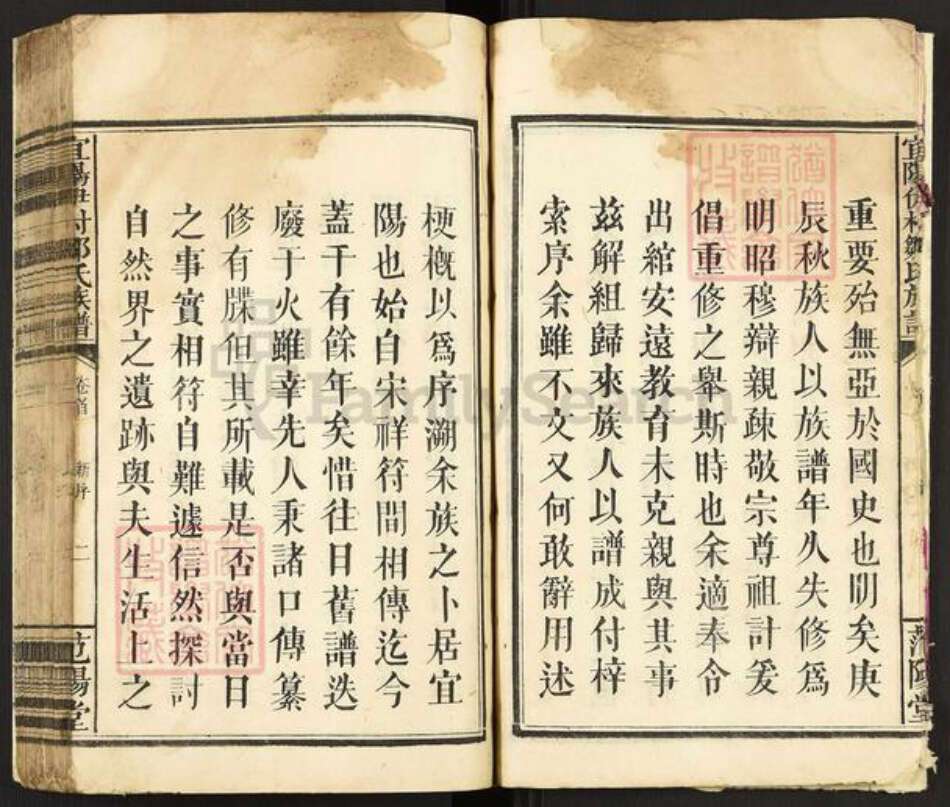 重要殆無亞於國史也明矣庚
辰秋族人以族譜年久失修為
明昭穆辯親疎敬宗尊祖計爰
倡重修之舉斯時也余適奉令
出綰安遠教育未克親與其事
茲解組歸來族人以譜成付梓
索序余雖不文又何敢辭用述
范陽堂
梗概以爲序溯余族之卜居宜
陽也始自宋祥符間相傳迄今
蓋千有餘年矣惜往日舊譜迭
廢于火雖幸先人秉諸口傳纂
修有牒但其所載是否與當日
之事實相符自難遽信然探討
自然界之遺跡與夫生活上之
宜陽 村鄒氏族譜
卷首
新序
二
范陽堂
FamilySearch